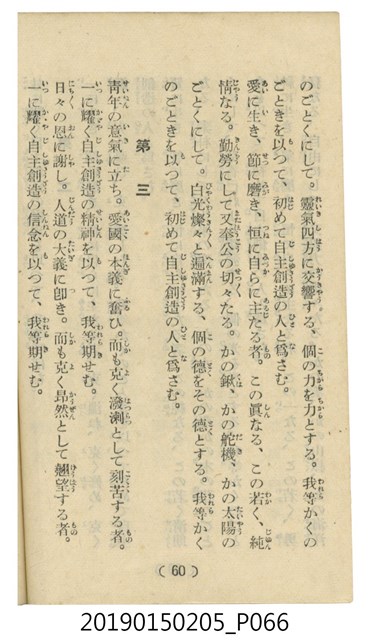 のごとくにして。靈氣四方に交響する、個の力を力とする。我等かくの
ごときを以つて、初めて自主創造の人と爲さむ。
愛に生き、節に磨き、恒に自らに主たる者。この眞なる、この若く、純
情なる。勤勞にして又奉公の切々たる。かの鍬、かの舵機、かの太陽の
ごとくにして。白光燦々と遍滿する、個の德をその德とする。我等かく
のごときを以つて、初めて自主創造の人と爲さむ。
第三
靑年の意氣に立ち。愛國の本義に奮ひ。而も克く潑溂として刻苦する者。
一に耀く自主創造の精神を以つて、我等期せむ。
日々の恩に謝し。人道の大義に卽き。而も克く昂然として翹望する者。
一に耀く自主創造の信念を以つて、我等期せむ。
(60)
20190150205_P066